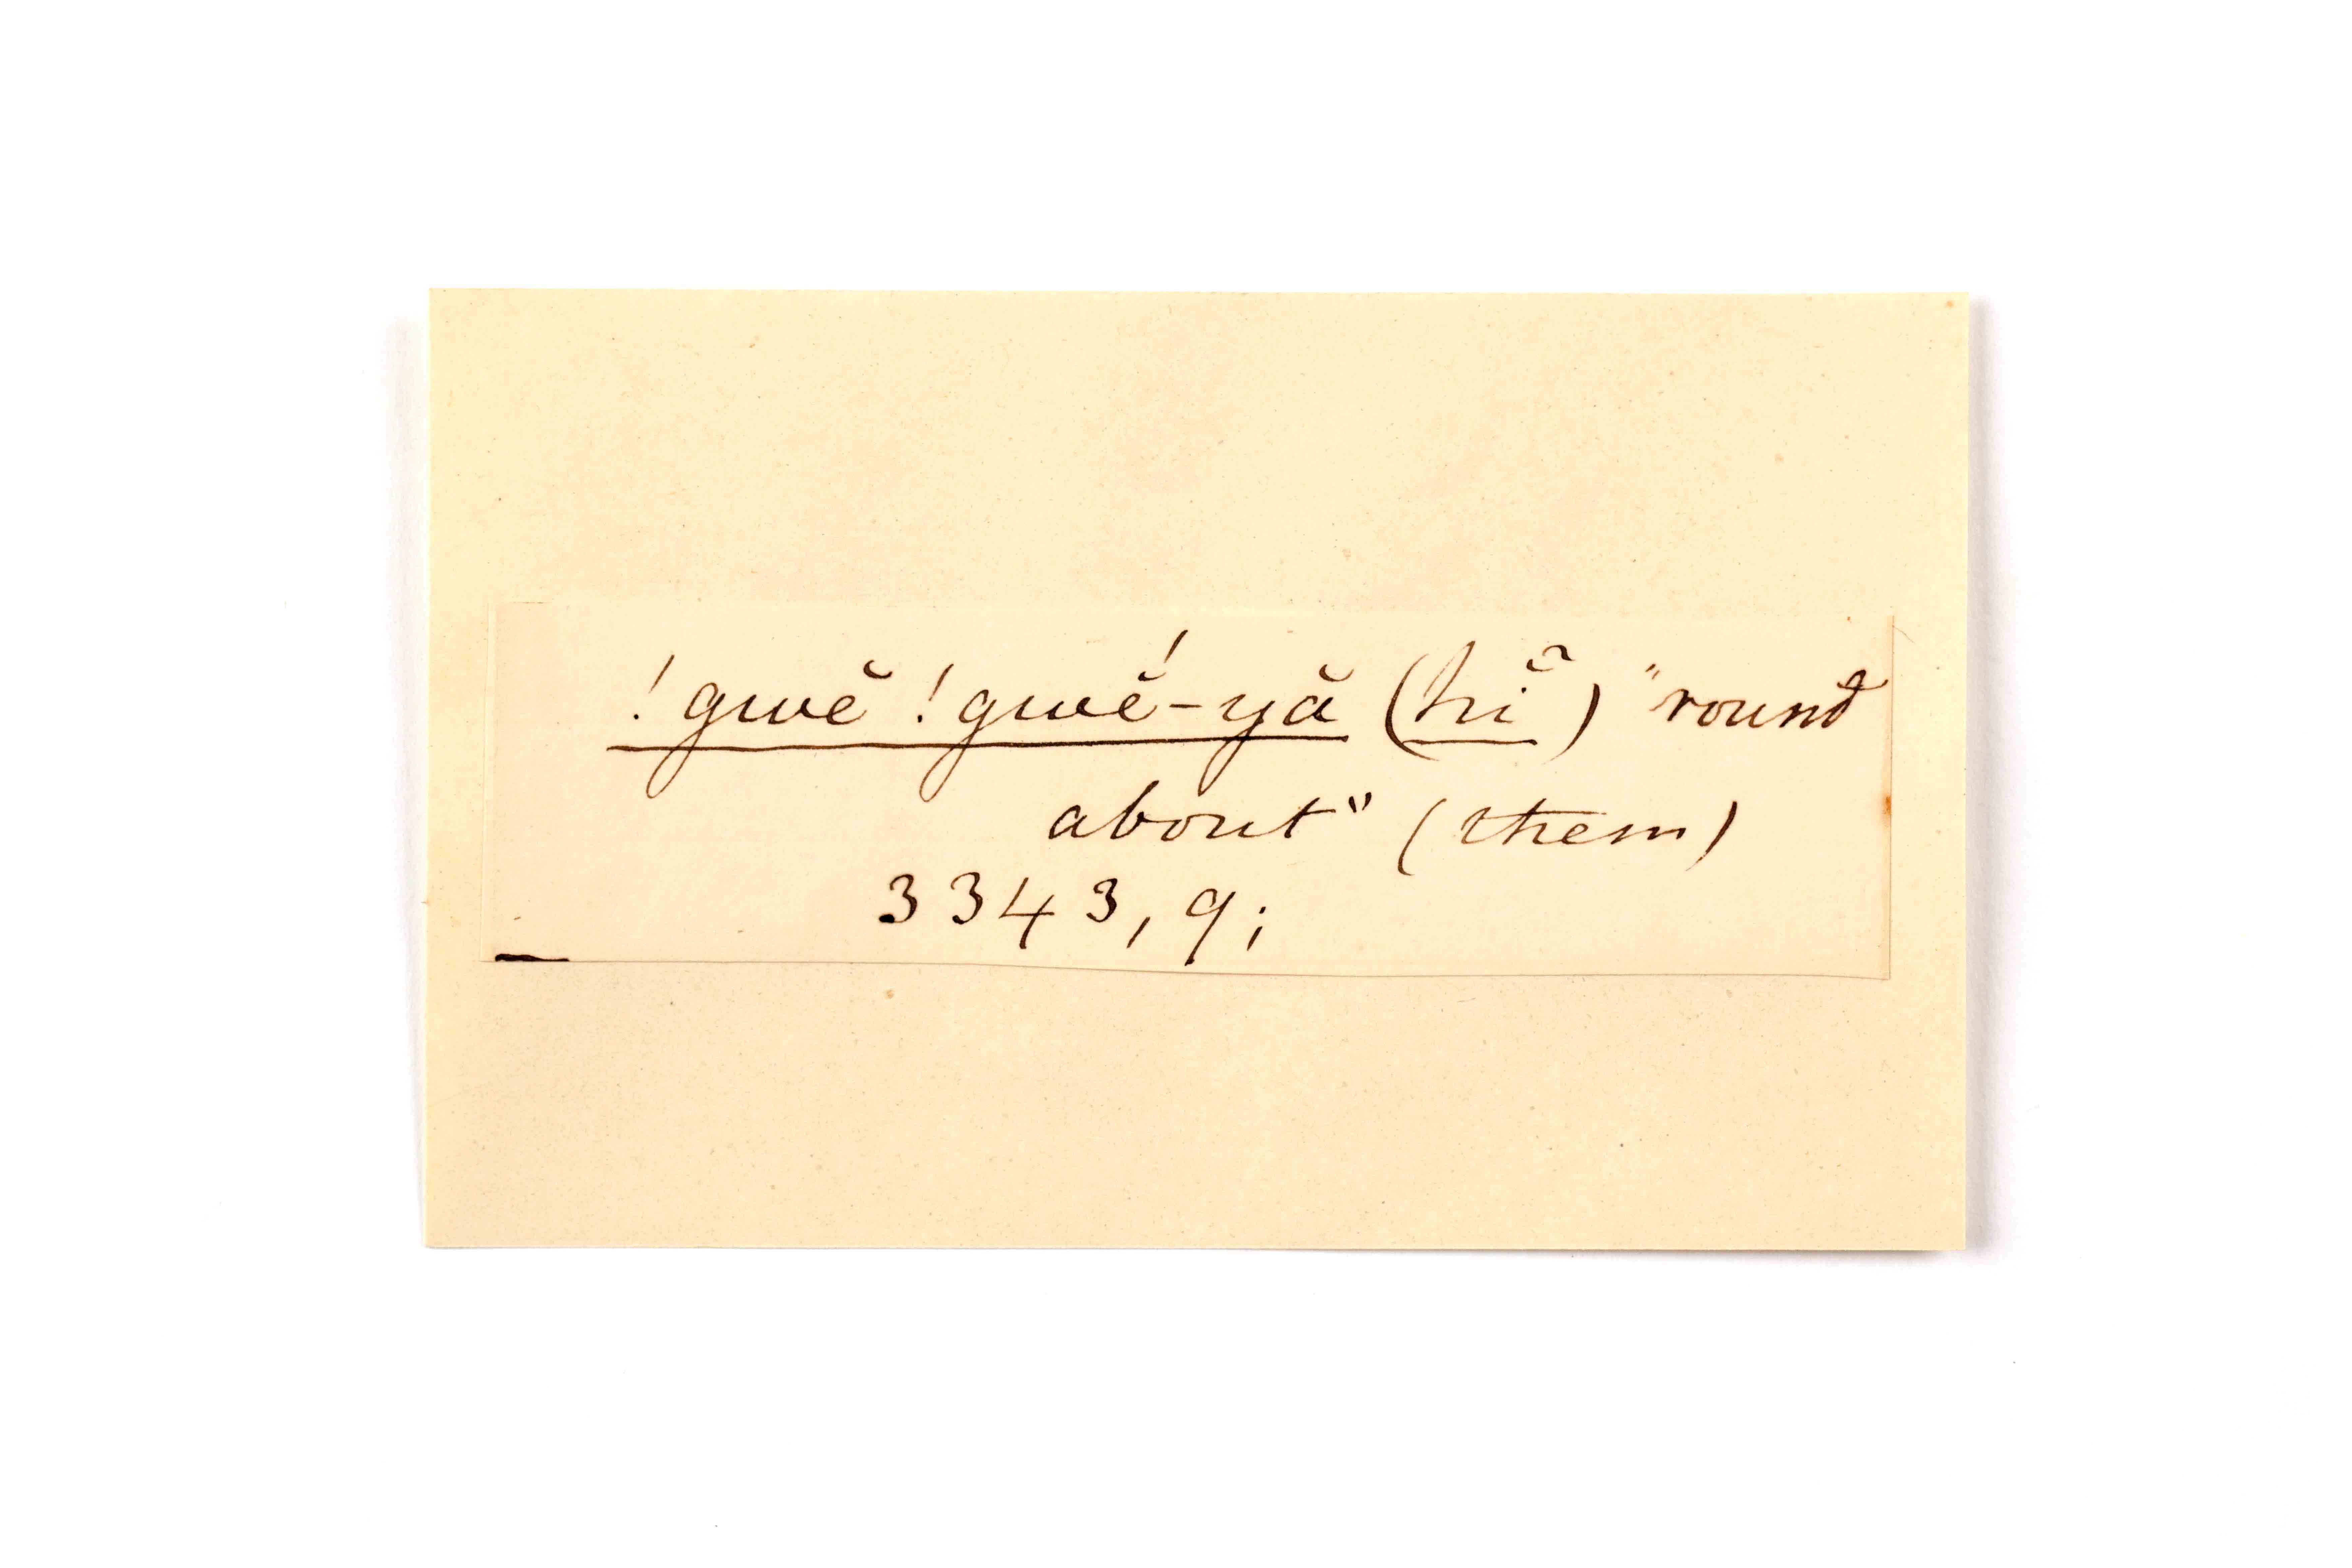 !gwĕ !gwĕ́-yă (hĭ̃) "round
about" (them)
3343, 9;